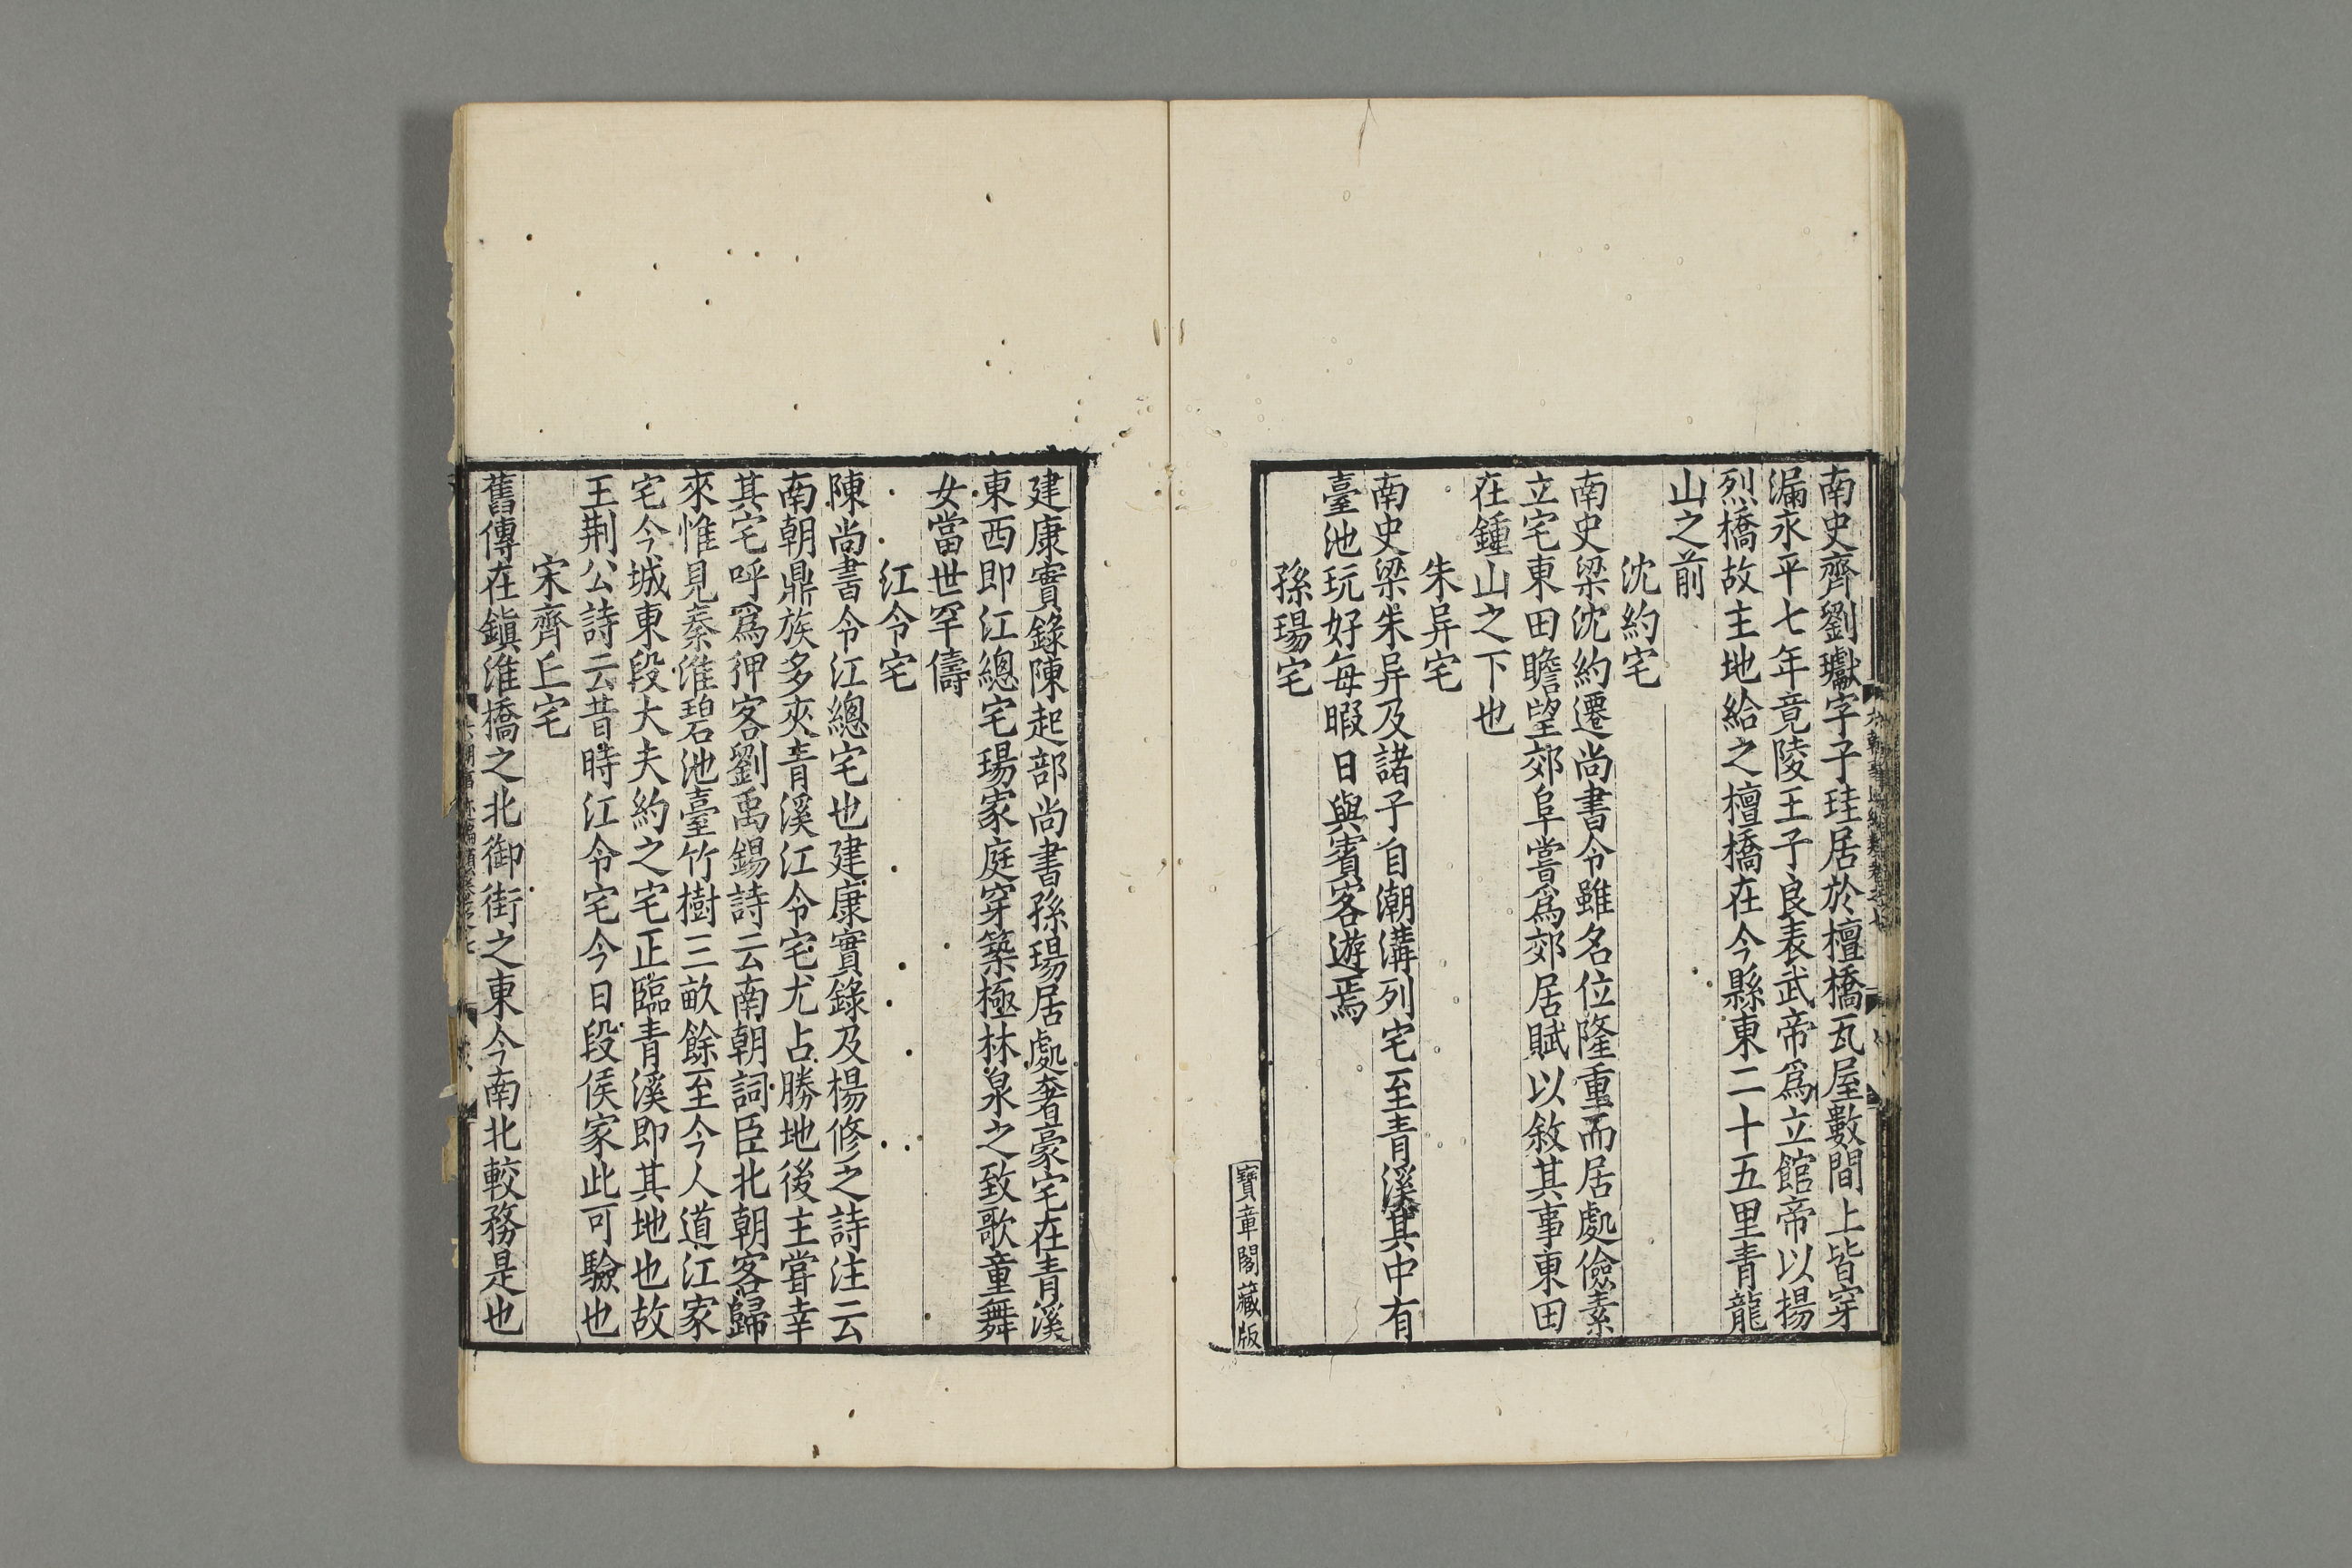 南史齊劉瓛字子珪居於檀橋瓦屋數間上皆穿
漏永平七年竟陵王子良表武帝爲立館帝以揚
烈橋故主地給之檀橋在今縣東二十五里青龍
山之前
沈約宅
南史梁沈約遷尚書令雖名位隆重而居處儉素
立宅東田瞻望郊阜嘗爲郊居賦以敘其事東田
在鍾山之下也
朱异宅
南史梁朱异及諸子自潮溝列宅至青溪其中有
臺池玩好每暇日與賓客遊焉
孫瑒宅
寶章閣藏版
建康實錄陳起部尚書孫瑒居處奢豪宅在青溪
東西即江總宅瑒家庭穿築極林泉之致歌童舞
女當世罕儔
江令宅
陳尚書令江總宅也建康實錄及楊修之詩注云
南朝鼎族多夾青溪江令宅尤占勝地後主嘗幸
其宅呼爲狎客劉禹錫詩云南朝詞臣北朝客歸
來惟見秦淮碧池臺竹樹三畝餘至今人道江家
宅今城東段大夫約之宅正臨青溪即其地也故
王荆公詩云昔時江令宅今日段侯家此可驗也
宋齊丘宅
舊傳在鎭淮橋之北御街之東今南北較務是也